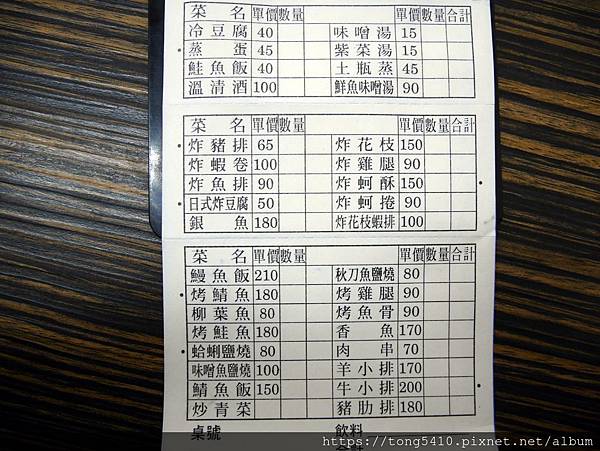 菜名 單價 數量 菜名 單價 數量 合計
冷豆腐 40 味噌湯 15
蒸蛋 45 紫菜湯 15
鮭魚飯 40 土瓶蒸 45
溫清酒 100 鮮魚味噌湯 90
菜名 單價 數量 單價 數量 合計
炸豬排 65 炸花枝 150
炸蝦卷 100 炸雞腿 90
炸魚排 90 炸蚵酥 150
日式炸豆腐 50 炸蚵捲 90
銀魚 180 炸花枝蝦排 100
菜名 單價 數量 單價 數量 合計
鰻魚飯 210 秋刀魚鹽燒 80
烤鯖魚 180 烤雞腿 90
柳葉魚 80 烤魚骨 90
烤鮭魚 180 香魚 170
蛤蜊鹽燒 80 肉串 70
味噌魚鹽燒 100 羊小排 170
鯖魚飯 150 牛小排 200
炒青菜 豬肋排 180
桌號 飲料
https://tong5410.pixnet.net/album